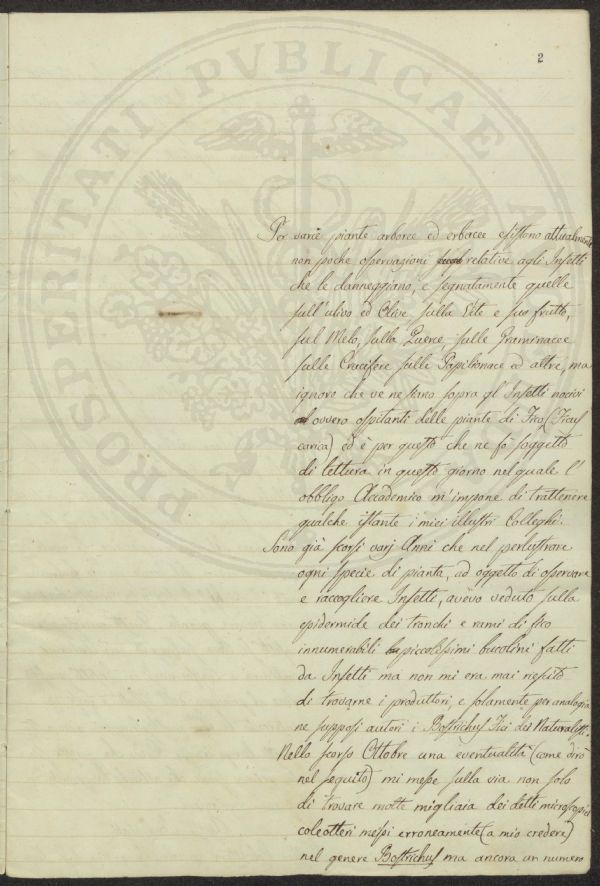 2
Per varie piante arboree ed erbacee esistono attualmente
non poche osservazioni relative agli Insetti
che le danneggiano, e segnatamente quelle
sull'ulivo ed Olive sulla Vite e suo frutto,
sul Melo, sulla Querce, sulle Graminacee
sulle Crucifere sulle Papilionace ed altre, ma
ignoro che ve ne siano sopra gl'Insetti nocivi
ovvero ospitanti delle piante di Fico (Ficus
carica) ed è per questo che ne fò soggetto
di lettura in questo giorno nel quale l'
obbligo Accademico m'impone di trattenere
qualche istante i miei illustri Colleghi.
Sono già scorsi varj Anni che nel perlustrare
ogni specie di pianta, ad oggetto di osservare
e raccogliere Insetti, avevo veduto sulla
epidermide dei tronchi e rami di fico
innumerabili piccolissimi bucolini fatti
da Insetti ma non mi era mai riescito
di trovarne i produttori, e solamente per analogia
ne supposi autori i Bostrichus Fici dei Naturalisti.
Nello scorso Ottobre una eventualità (come dirò
nel seguito) mi messe sulla via non solo
di trovare molte migliaia dei detti microscopici
coleotteri messi erroneamente (a mio credere)
nel genere Bostrichus ma ancora un numero
PROSPERITATI PVBLICAE